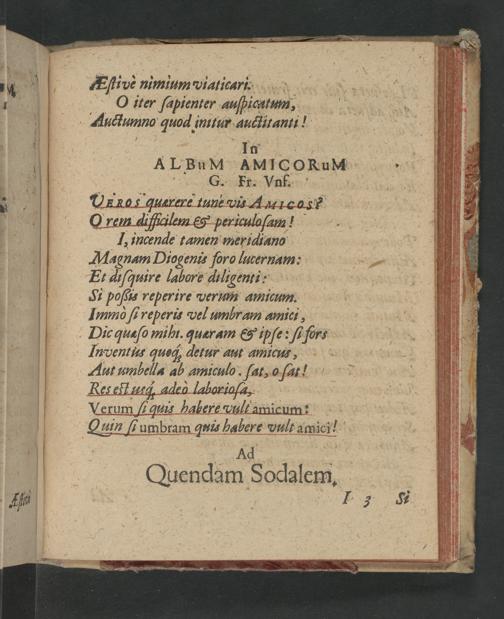 Æstivè nimium viaticari.
O iter sapienter auspicatum,
Auctumno quod initur auctitanti!
In
ALBuM AMICORuM
G. Fr. Vnf.
VEROS quærere tune vis AMICOS?
O rem difficilem & periculosam!
I, incende tamen meridiano
Magnam Diogenis foro lucernam:
Et disquire labore diligenti:
Si possis reperire verum amicum.
Immò si reperis vel umbram amici,
Dic quæso mihi. quæram & ipse: si fors
Inventus quoq́, detur aut amicus,
Aut umbella ab amiculo. sat, o sat!
Res est usq́, adeò laboriosa,
Verum si quis habere vult amicum:
Quin si umbram quis habere vult amici!
Ad
Quendam Sodalem.
I 3 Si
Æstivè